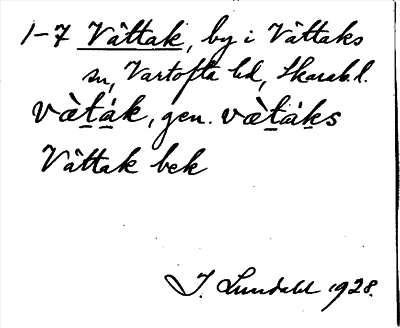 1-7 Vättak, by i Vättaks
sn, Vartofta hd, Skarab.l.
væ̀t̠á̠k, gen. væ̀t̠ák̠s
Vättak bek
J. Lundahl 1928.